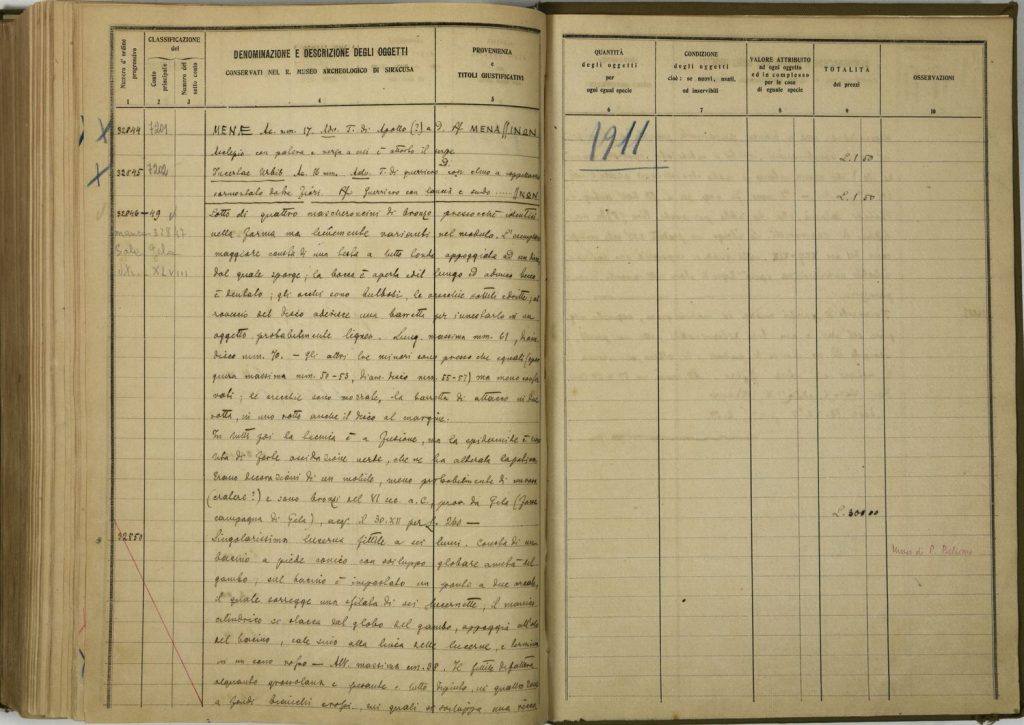 Numero d'ordine progressivo
CLASSIFICAZIONE del
Conto principale
Numero del sotto conto
DENOMINAZIONE E DESCRIZIONE DEGLI OGGETTI
CONSERVATI NEL R. MUSEO ARCHEOLOGICO DI SIRACUSA
PROVENIENZA
e
TITOLI GIUSTIFICATIVI
1 2 3 4 5
32844 7201 MENE Ae. mm. 17. Adv. T. di Apollo (?) a D. Rf. MENAINON
Asclepio con
32845 7202 Incertae Urbis Ae. 16 mm. Adv. T. di guerriero con elmo a
Rf. Guerriero con lancia e scudo ..... INON
32846-49 Lotto di quattro mascheroncini di bronzo pressochè identici
manca 32847 nella forma ma lievemente varianti nel modulo. L'esemplare
Sala Gela maggiore consta di una testa a tutto tondo appoggiata ad un disco
XLVIII dal quale sporge; la bocca è aperta ed il lungo ed adunco becco
è dentato; gli occhi sono bulbosi, le orecchie sottili e dritte; al
rovescio del disco aderisce una barretta per innestarlo in un
oggetto probabilmente ligneo. Lung. massima mm. 61, diam.
disco mm. 70. — Gli altri tre minori sono presso che eguali
massima mm. 50-53, diam. disco mm. 55-57) ma meno
le orecchie sono mozzate, la barretta di attacco in due
rotta, in uno rotto anche il disco al margine.
In tutti poi la tecnica è a fusione, ma la epidermide è
di forte ossidazione verde, che ne ha alterata la patina.
Erano decorazioni di un mobile, meno probabilmente di un vaso
(cratere?) e sono bronzi del VI sec. a. C., prov. da Gela
campagna di Gela), acq. il 30.XII per L. 260 —
32850 Singolarissima lucerna fittile a sei lumi. Consta di un
bacino a piede conico con sviluppo globare a metà del
gambo; sul bacino è impostato un ponte a due arcate,
il quale sorregge una sfilata di sei lucernette; il manico
cilindrico si stacca dal globo del gambo, appoggia
del bacino, sale sino alla linea delle lucerne, e termina
in un cono — Alt. massima cm. 38. Il fittile di fattura
alquanto grossolana e pesante è tutto dipinto, in quattro zone
a fondi bianchi in quali si sviluppa una ricca
QUANTITÀ
degli oggetti
per
ogni egual specie
CONDIZIONE
degli oggetti
cioè: se nuovi, usati,
od inservibili
VALORE ATTRIBUITO
ad ogni oggetto
ed in complesso
per le cose
di eguale specie
TOTALITÀ
dei prezzi
OSSERVAZIONI
6 7 8 9 10
1911
L. 1 50
L. 1 50
L. 300.00